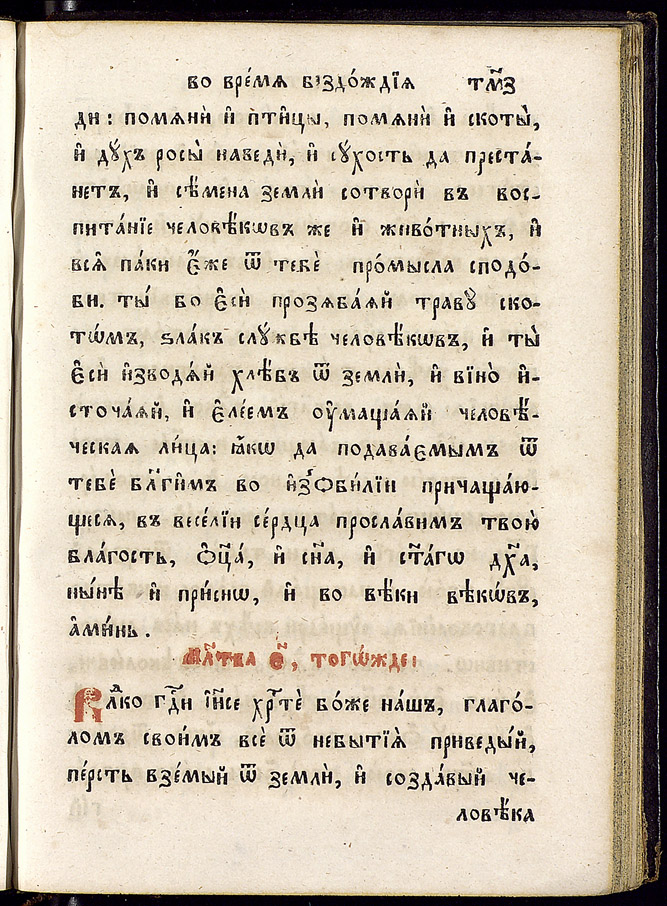 во вре́мѧ бездо́ждїѧ тм҃з
ди : помѧнѝ и҆ пти̑цы, помѧнѝ и҆ скоты̀,
и҆ дꙋ́хъ росы̀ наведѝ, и҆ сꙋ́хость да преста́-
нетъ, и҆ сѣ́мена землѝ сотворѝ въ вос-
пита́нїе человѣ́кѡвъ же и҆ живо́тныхъ, и҆
всѧ̑ па́ки є҆́же ѿ тебѐ про́мысла сподо́-
би. ты́ бо є҆сѝ прозѧба́ѧй травꙋ̀ ско-
тѡ́мъ, ѕла́къ слꙋ́жбѣ человѣ́кѡвъ, и҆ ты̀
є҆сѝ и҆зводѧ́й хлѣ́бъ ѿ землѝ, и҆ вїно̀ и҆-
сточа́ѧй, и҆ є҆ле́емъ ᲂу҆маща́ѧй человѣ́-
ческаѧ ли́ца: ꙗ҆́кѡ да подава́ємымъ ѿ
тебѐ бл҃ги́мъ во и҆зѻби́лїи причаща́ю-
щесѧ, въ весе́лїи се́рдца просла́вимъ твою̀
бла́гость, ѻ҆ц҃а̀, и҆ сн҃а, и҆ ст҃а́гѡ дх҃а,
ны́нѣ и҆ при́снѡ, и҆ во вѣ́ки вѣкѡ́въ,
а҆ми́нь .
мл҃тва є҃, тогѡ́жде:
Влⷣко гдⷭ҇и і҆и҃се хрⷭ҇тѐ бо́же на́шъ, глаго́-
ломъ свои́мъ всѐ ѿ небытїѧ̀ приведы́й,
пе́рсть взе́мый ѿ землѝ, и҆ созда́вый че-
ловѣ́ка